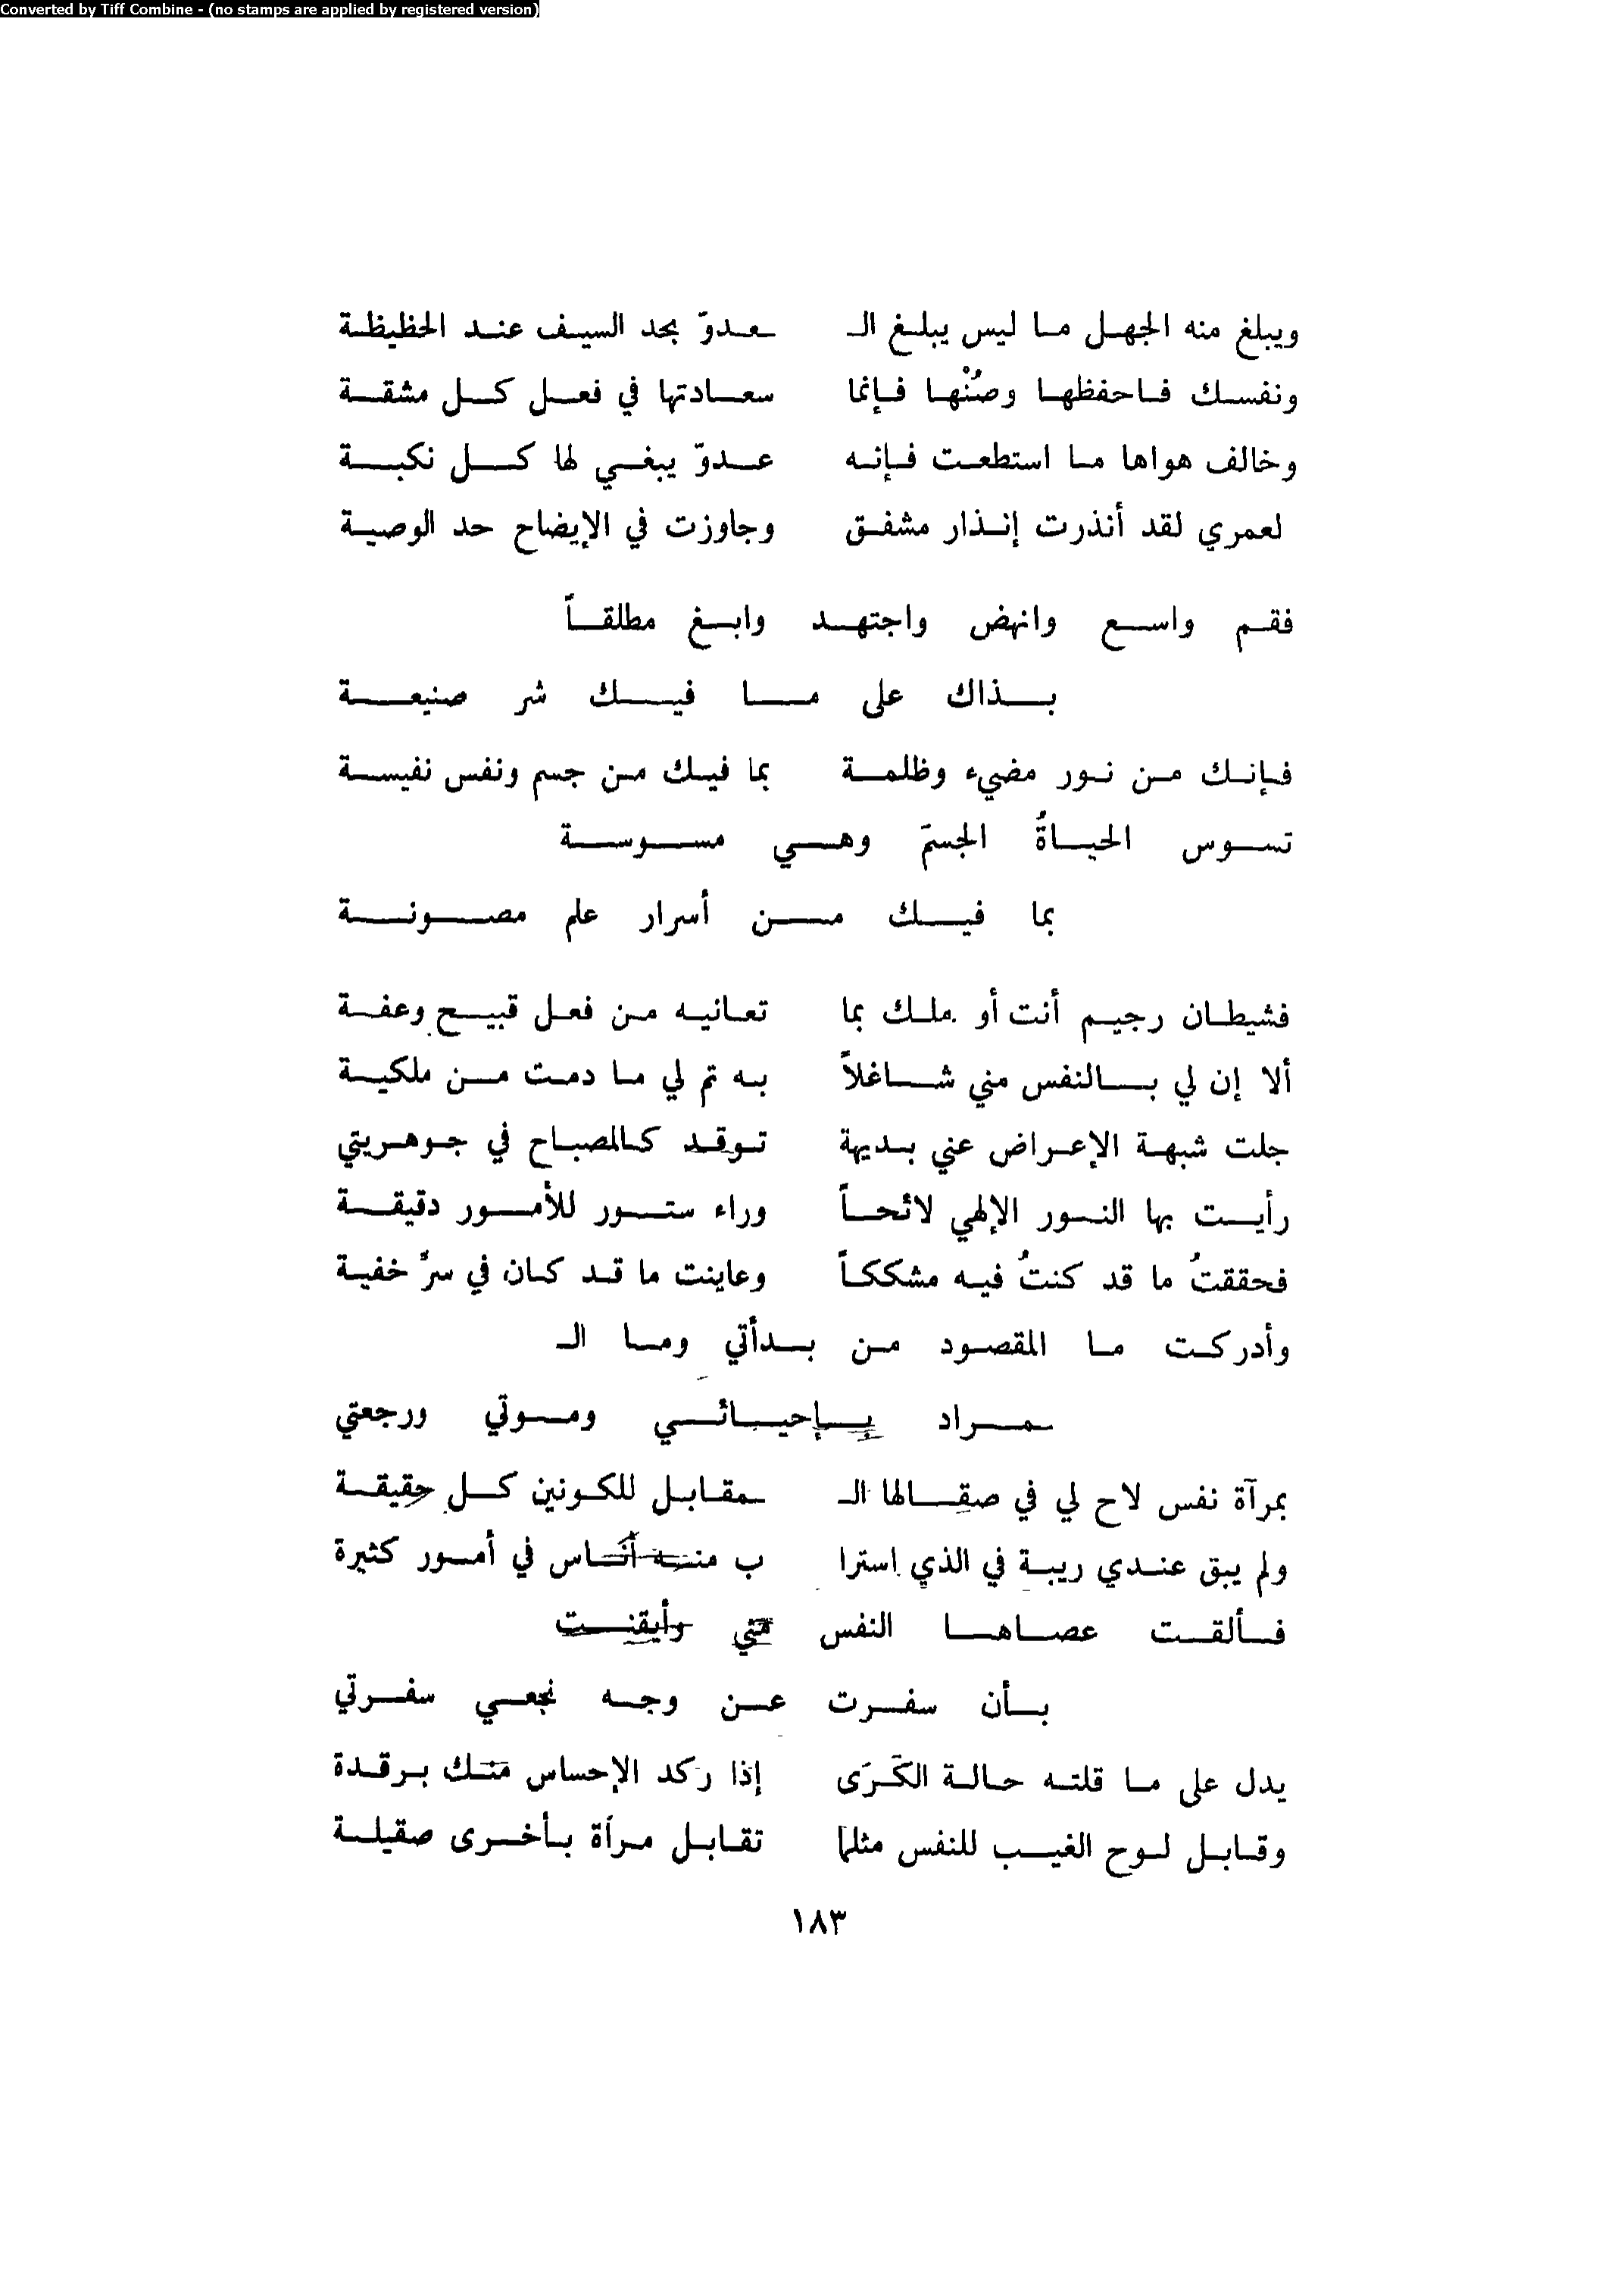 Converted by Tiff Combine - (no stamps are applied by registered version)
ويبلغ منه الجهل ما ليس يبلغ الـ ـعدوّ بحد السيف عند الحظيظة
ونفسك فاحفظها وصُنْها فإنما سعادتها في فعل كل مشقة
وخالف هواها ما استطعت فإنه عدوّ يبغي لها كل نكبة
لعمري لقد أنذرت إنذار مشفق وجاوزت في الإيضاح حد الوصية
فقم واسع وانهض واجتهد وابغ مطلقاً
بذاك على ما فيك شر صنيعة
فإنك من نور مضيء وظلمة بما فيك من جسم ونفس نفيسة
تسوس الحياةُ الجسمَ وهي مسوسة
بما فيك من أسرار علم مصونة
فشيطان رجيم أنت أو ملك بما تعانيه من فعل قبيح وعفة
ألا إن لي بالنفس مني شاغلاً به تم لي ما دمت من ملكية
جلت شبهة الإعراض عني بديهة توقد كالمصباح في جوهريتي
رأيت بها النور الإلهي لائحاً وراء ستور للأمور دقيقة
فحققتُ ما قد كنتُ فيه مشككاً وعاينت ما قد كان في سرِّ خفية
وأدركت ما المقصود من بدأتي وما الـ
ـمراد بإحيائي وموتي ورجعتي
بمرآة نفس لاح لي في صقالها الـ ـمقابل للكونين كل حقيقة
ولم يبق عندي ريبة في الذي استرا ب منه أناس في أمور كثيرة
فألقت عصاها النفس مني وأيقنت
بأن سفرت عن وجه نجعي سفرتي
يدل على ما قلته حالة الكَرَى إذا ركد الإحساس منك برقدة
وقابل لوح الغيب للنفس مثلما تقابل مرآة بأخرى صقيلة
١٨٣